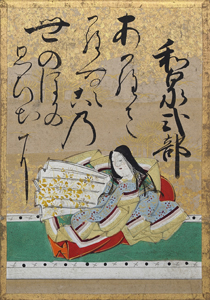 和泉式部
あらさ
らむこの
世のほかの